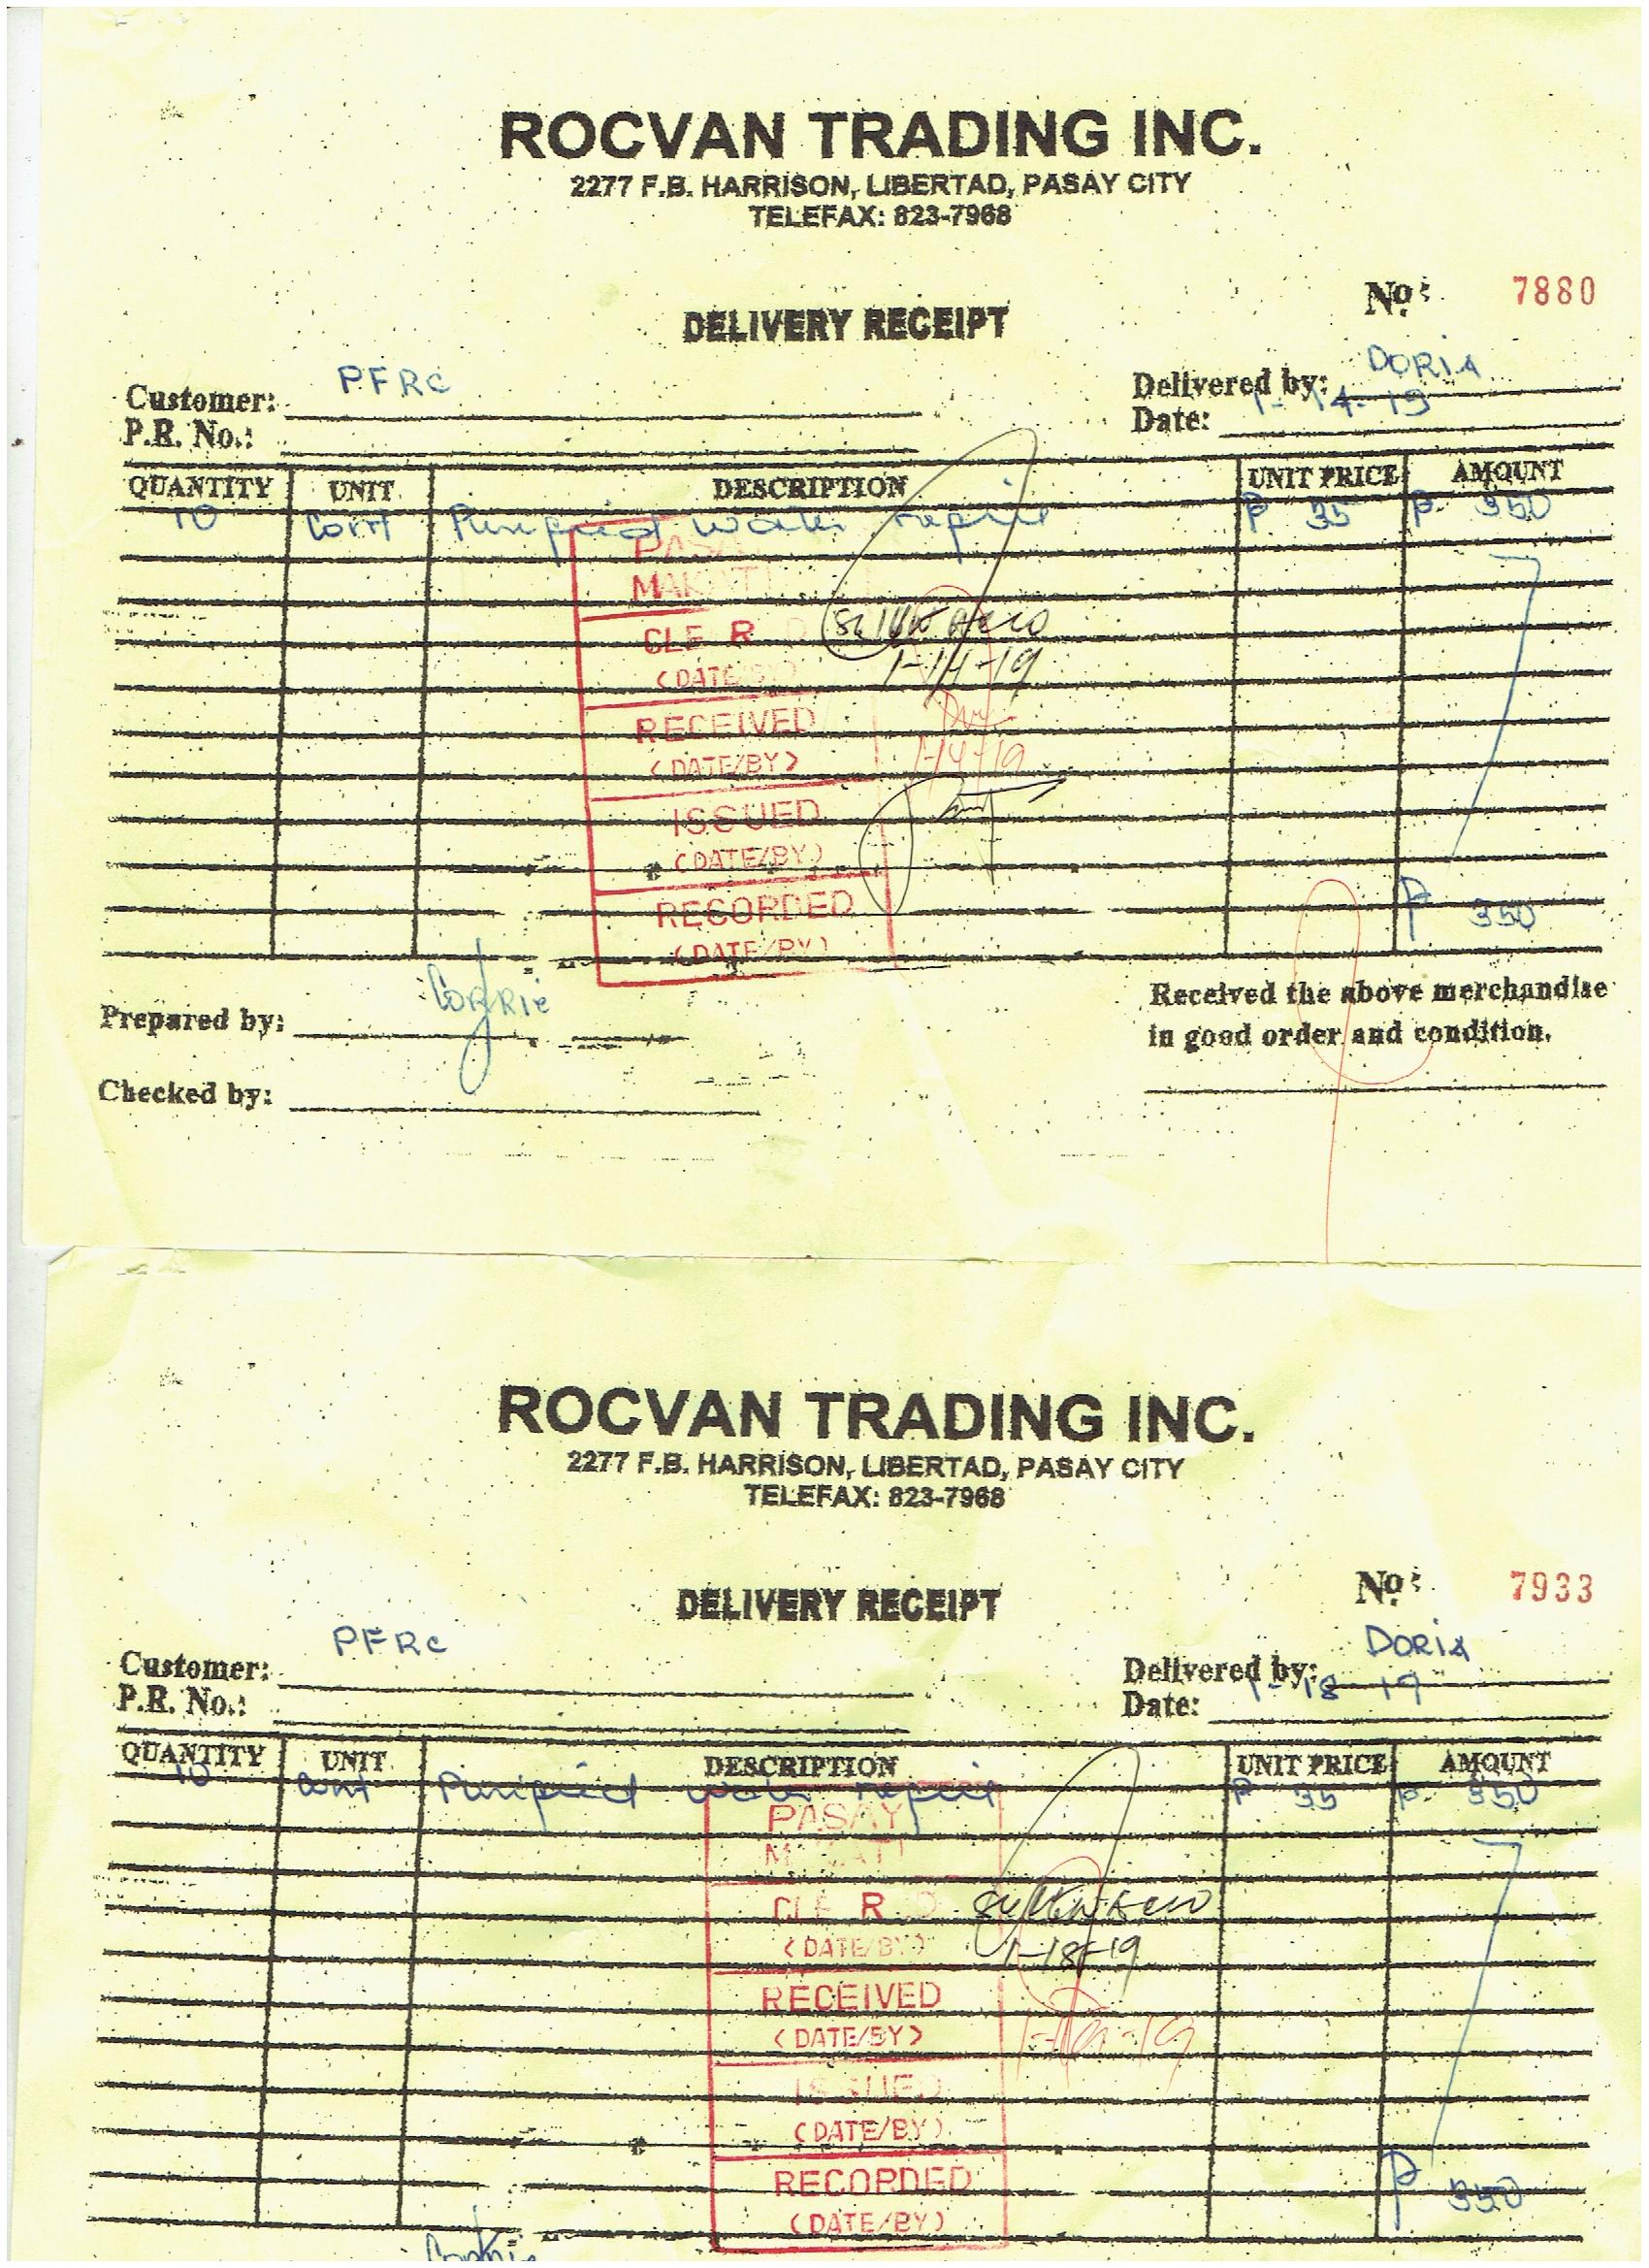 ROCVAN TRADING INC.
2277 F.B. HARRISON, LIBERTAD, PASAY CITY
TELEFAX: 823-7968
No: 7880
DELIVERY RECEIPT
Customer: PFRC
Delivered by: DORIA
P.R. No.:
Date: 1-14-19
QUANTITY UNIT DESCRIPTION UNIT PRICE AMOUNT
10 Cont Puripied water repill P 35 P 350
PASAY
MAKATI
CLE R D
1-14-19
(DATE/BY)
RECEIVED
(DATE/BY) 1-14-19
ISSUED
(DATE/BY)
RECORDED
P 350
(DATE/BY)
Prepared by: Corrie
Received the above merchandise
in good order and condition.
Checked by:
ROCVAN TRADING INC.
2277 F.B. HARRISON, LIBERTAD, PASAY CITY
TELEFAX: 823-7968
No: 7933
DELIVERY RECEIPT
Customer: PFRC
Delivered by: DORIA
P.R. No.:
Date: 1-18-19
QUANTITY UNIT DESCRIPTION UNIT PRICE AMOUNT
10 Cont Puripied water repill P 35 P 350
PASAY
MAKATI
CLE R D
(DATE/BY) 1-18-19
RECEIVED
(DATE/BY)
ISSUED
(DATE/BY)
RECORDED
P 350
(DATE/BY)